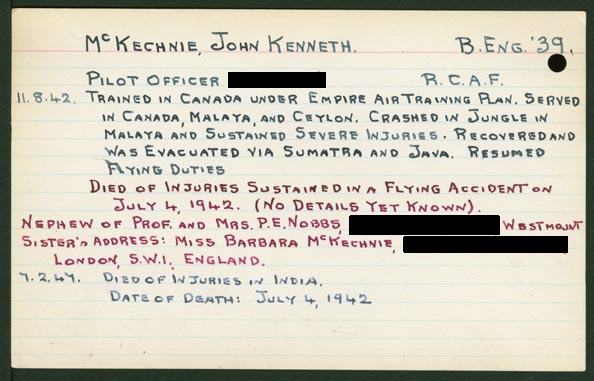 McKECHNIE, JOHN KENNETH. B.ENG.'39.
PILOT OFFICER R.C.A.F.
11.8.42. TRAINED IN CANADA UNDER EMPIRE AIR TRAINING PLAN. SERVED
IN CANADA, MALAYA, AND CEYLON. CRASHED IN JUNGLE IN
MALAYA AND SUSTAINED SEVERE INJURIES. RECOVERED AND
WAS EVACUATED VIA SUMATRA AND JAVA. RESUMED
FLYING DUTIES
DIED OF INJURIES SUSTAINED IN A FLYING ACCIDENT ON
JULY 4, 1942. (NO DETAILS YET KNOWN).
NEPHEW OF PROF. AND MRS. P.E. NOBBS, WESTMOUNT
SISTER'S ADDRESS: MISS BARBARA McKECHNIE,
LONDON, S.W.1. ENGLAND.
7.2.47. DIED OF INJURIES IN INDIA.
DATE OF DEATH: JULY 4, 1942